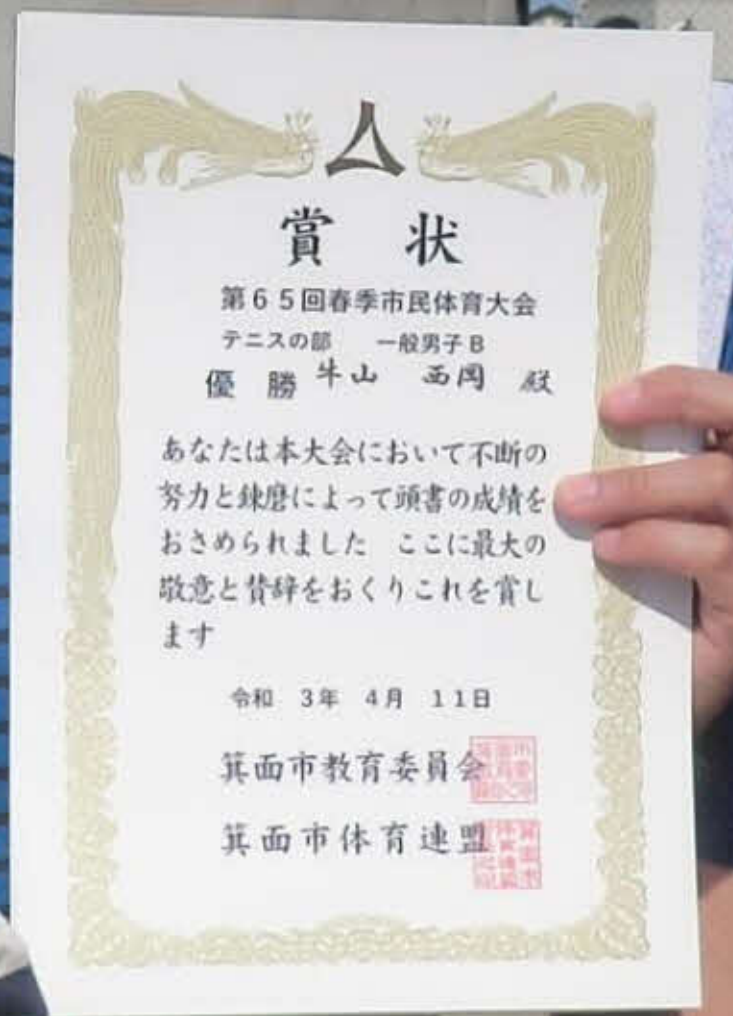 賞状
第65回春季市民体育大会
テニスの部 一般男子B
優勝 牛山 西岡 殿
あなたは本大会において不断の
努力と錬磨によって頭書の成績を
おさめられました ここに最大の
敬意と賛辞をおくりこれを賞し
ます
令和 3年 4月 11日
箕面市教育委員会
箕面市体育連盟